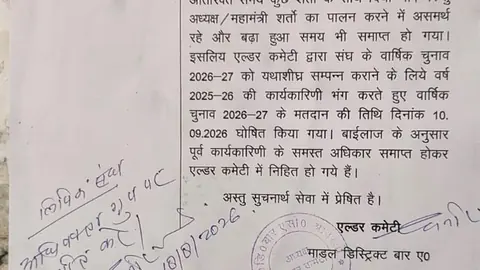 अतिरिक्त समय कुछ शर्तों के साथ दिया गया
अध्यक्ष/महामंत्री शर्तो का पालन करने में असमर्थ
रहे और बढ़ा हुआ समय भी समाप्त हो गया।
इसलिय एल्डर कमेटी द्वारा संघ के वार्षिक चुनाव
2026-27 को यथाशीघ्र सम्पन्न कराने के लिये वर्ष
2025-26 की कार्यकारिणी भंग करते हुए वार्षिक
चुनाव 2026-27 के मतदान की तिथि दिनांक 10.
09.2026 घोषित किया गया। बाईलाज के अनुसार
पूर्व कार्यकारिणी के समस्त अधिकार समाप्त होकर
एल्डर कमेटी में निहित हो गये हैं।
अस्तु सुचनार्थ सेवा में प्रेषित है।
एल्डर कमेटी
माडल डिस्ट्रिक्ट बार ए0
लिपिक संघ
करें।